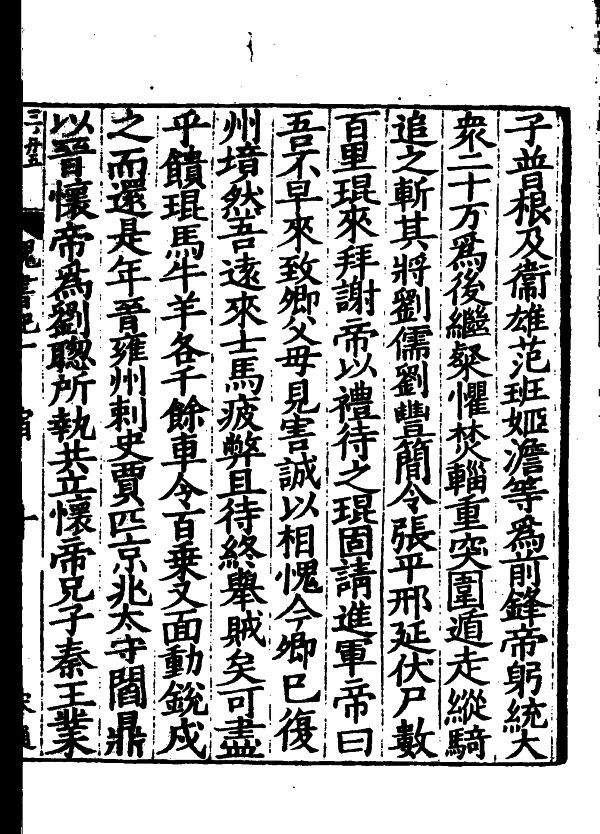 子普根及衞雄范班姬澹等爲前鋒帝躬統大
衆二十万爲後繼粲懼焚輜重突圍遁走縱騎
追之斬其將劉儒劉豐簡令張平邢延伏尸數
百里琨來拜謝帝以禮待之琨固請進軍帝曰
吾不早來致卿父母見害誠以相愧今卿巳復
州境然吾遠來士馬疲弊且待終舉賊矣可盡
乎饋琨馬牛羊各千餘車令百乗又面動銳戍
之而還是年晉雍州刺史賈匹京兆太守閻鼎
以晉懷帝爲劉聰所執共立懷帝兄子秦王業